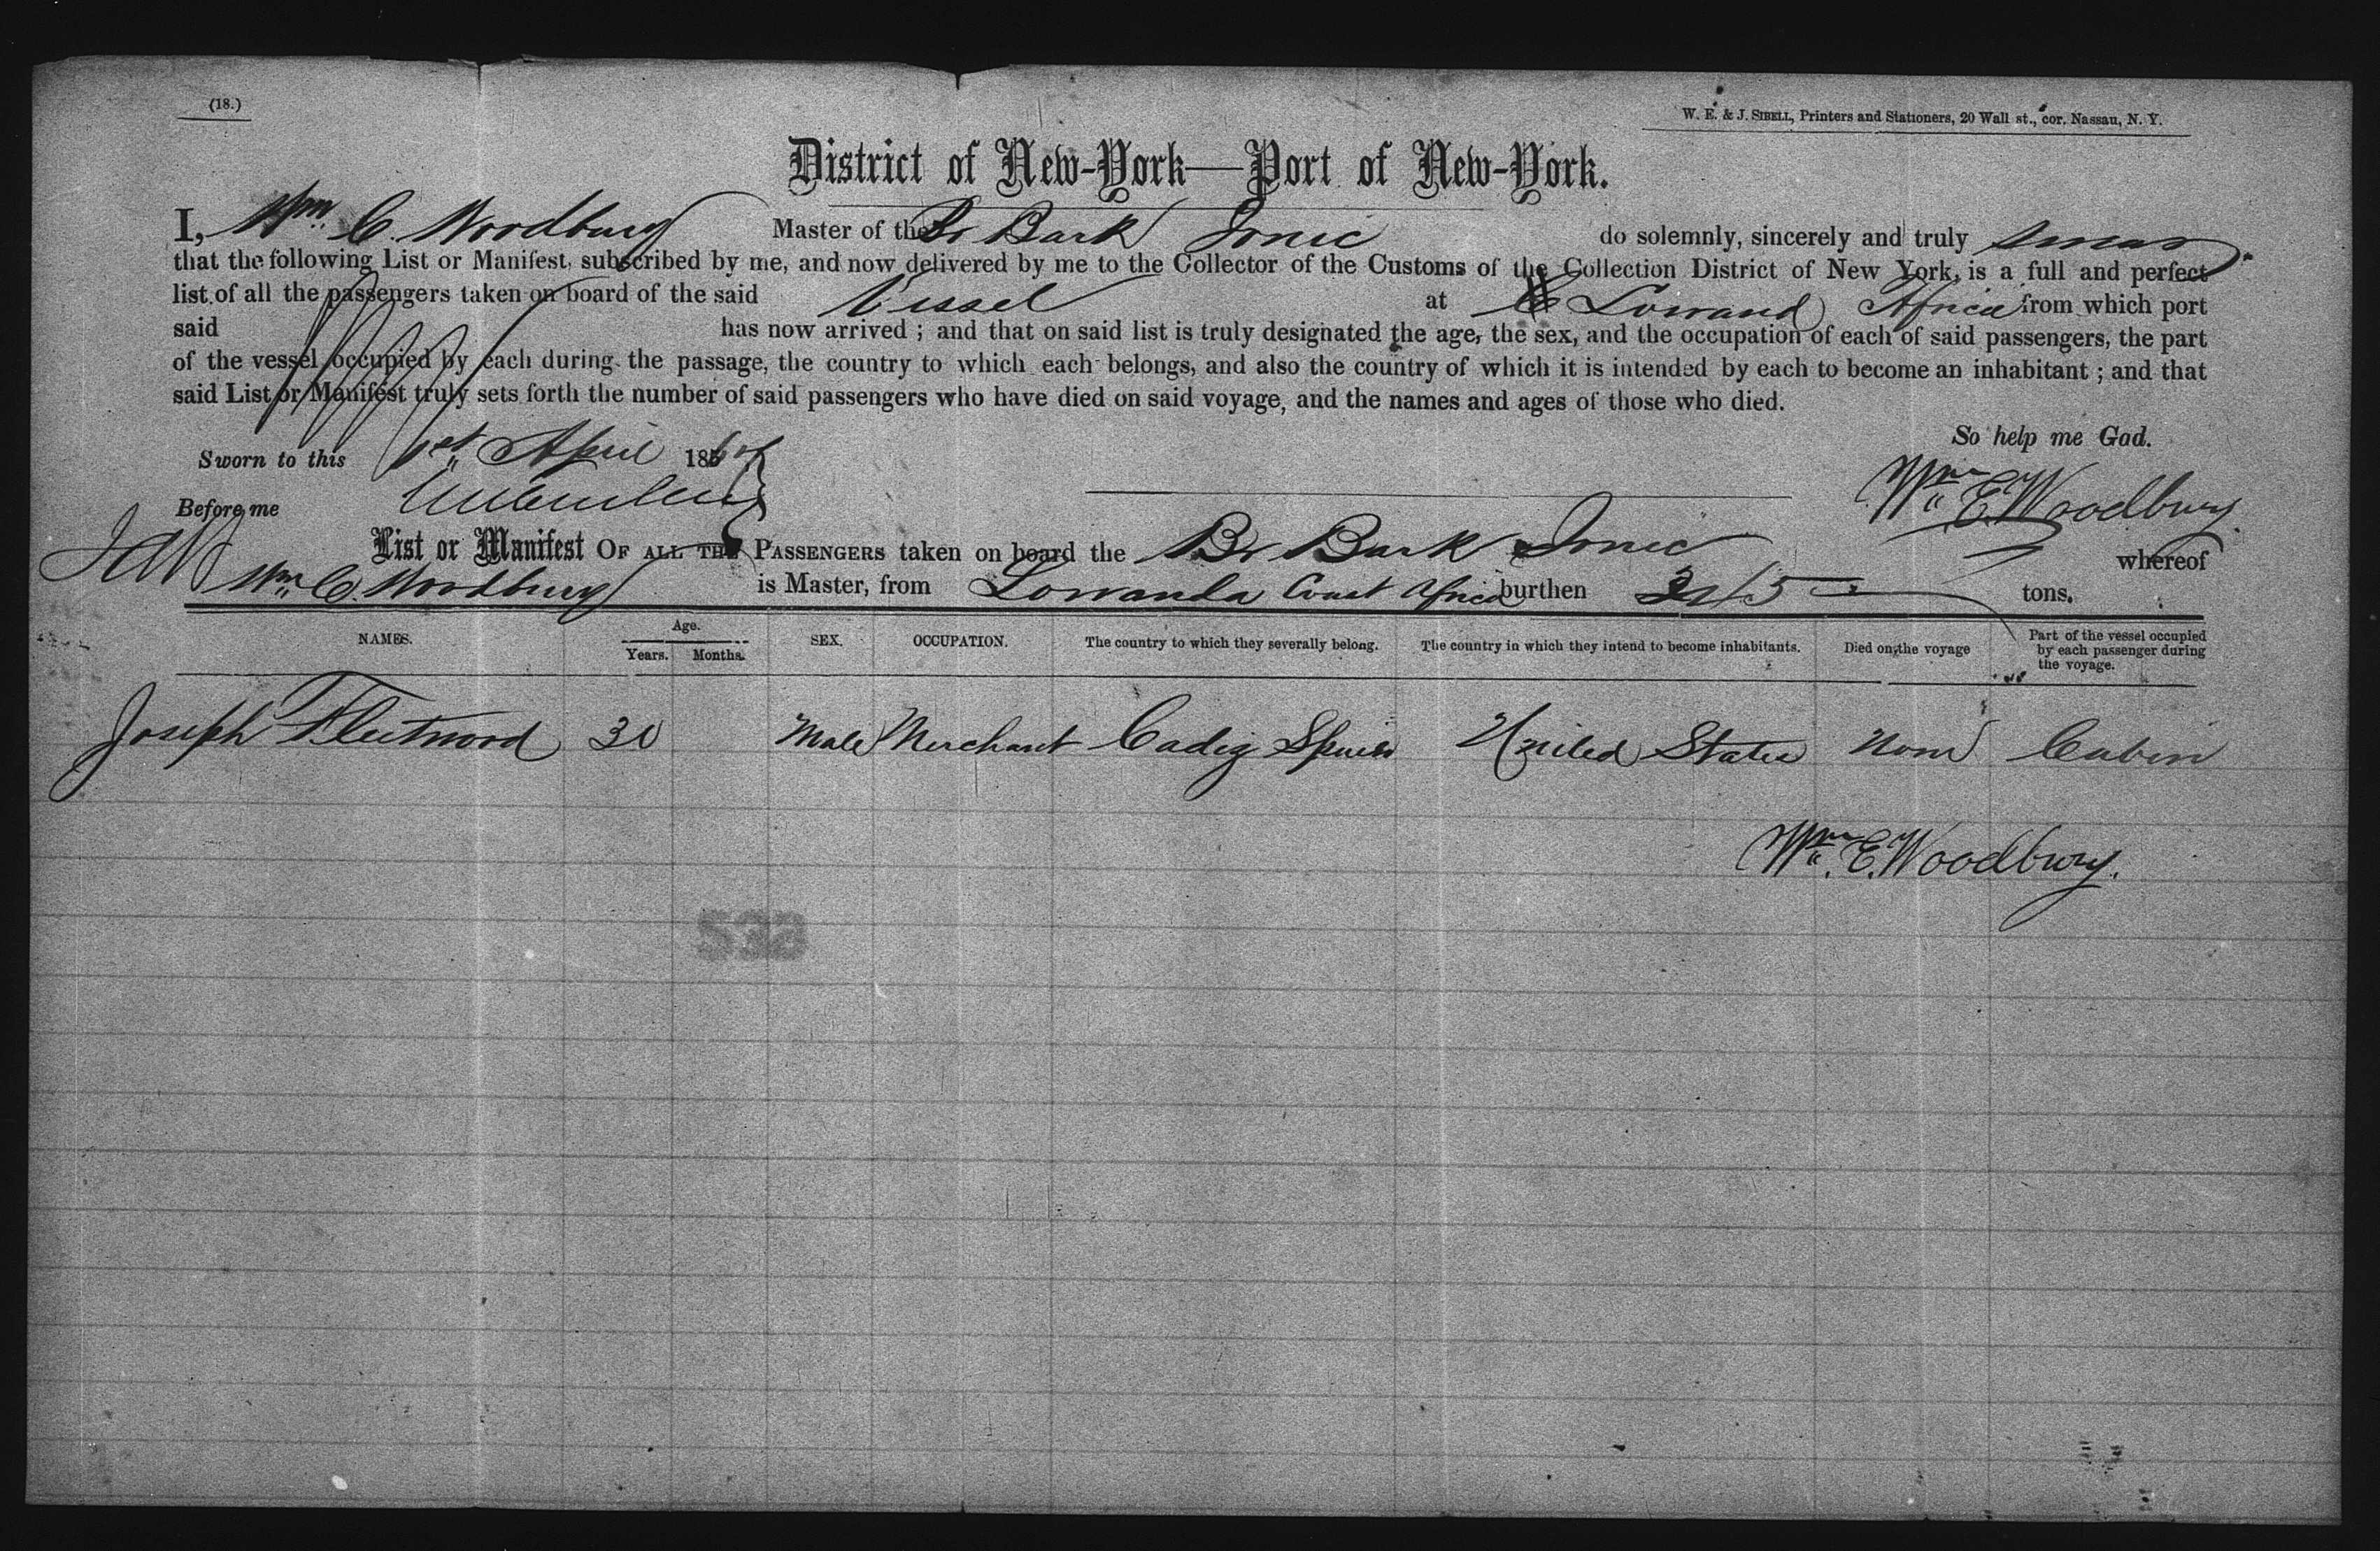 (18.)
W. E. & J. SIBELL, Printers and Stationers, 20 Wall st., cor. Nassau, N. Y.
District of New-York—Port of New-York.
I, Wm. C. Woodbury Master of the Br Bark Ionic do solemnly, sincerely and truly swear
that the following List or Manifest, subscribed by me, and now delivered by me to the Collector of the Customs of the Collection District of New York, is a full and perfect
list of all the passengers taken on board of the said Vessel at Lowand Africa from which port
said has now arrived ; and that on said list is truly designated the age, the sex, and the occupation of each of said passengers, the part
of the vessel occupied by each during the passage, the country to which each belongs, and also the country of which it is intended by each to become an inhabitant ; and that
said List or Manifest truly sets forth the number of said passengers who have died on said voyage, and the names and ages of those who died.
So help me God.
Sworn to this 1st April 186
Wm. E. Woodbury
Before me
List or Manifest OF ALL THE PASSENGERS taken on board the Br Bark Ionic whereof
Wm. C. Woodbury is Master, from Lowanda Coast Africa burthen tons.
NAMES. Age. Years. Months. SEX. OCCUPATION. The country to which they severally belong. The country in which they intend to become inhabitants. Died on the voyage Part of the vessel occupied by each passenger during the voyage.
Joseph Fleetwood 30 Male Merchant Cadiz Spain United States None Cabin
Wm. E. Woodbury.